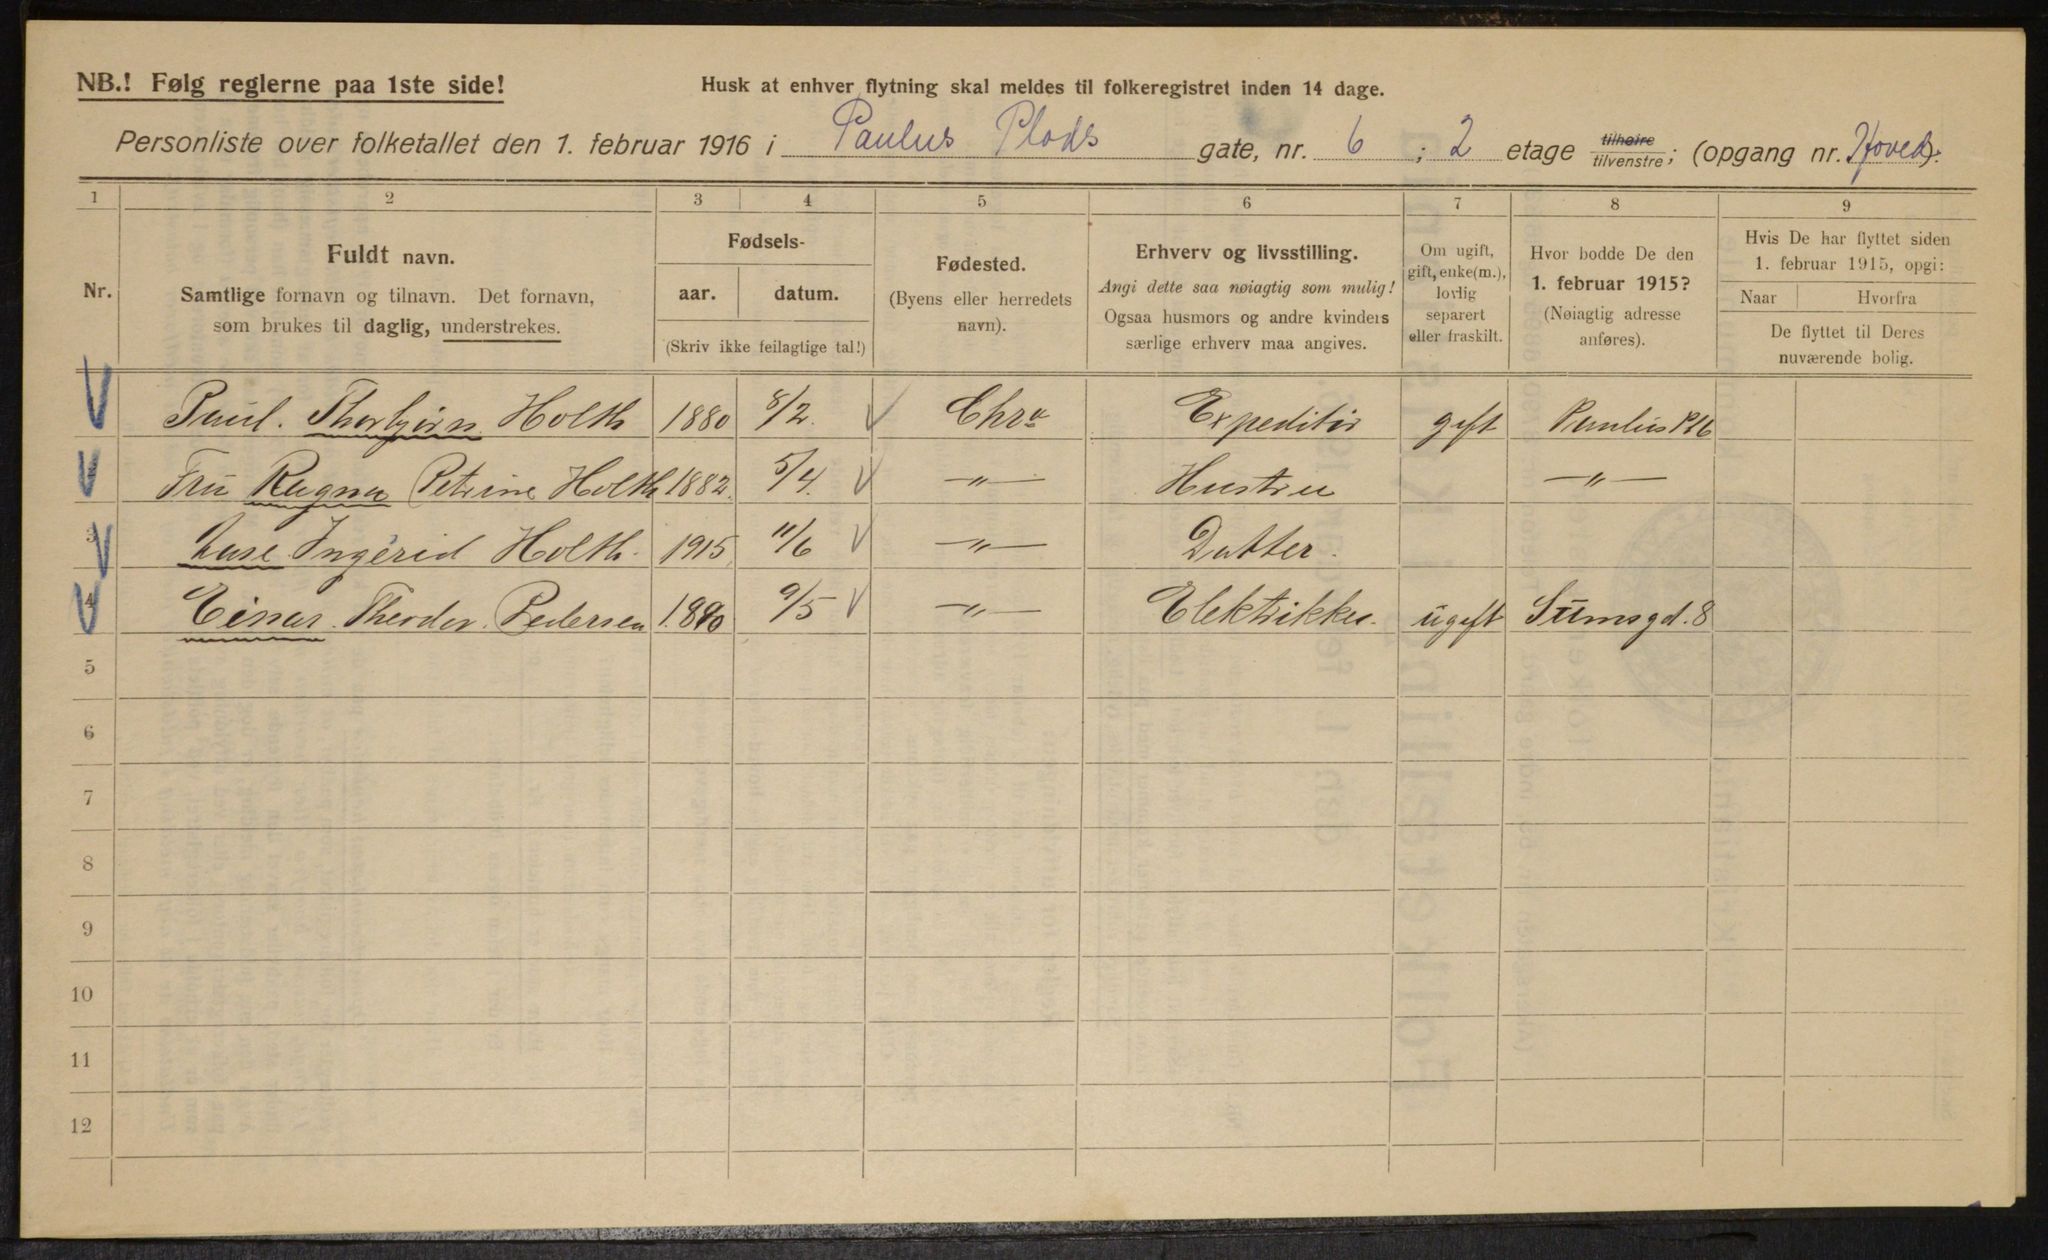 NB.! Følg reglerne paa 1ste side!
Husk at enhver flytning skal meldes til folkeregistret inden 14 dage.
Personliste over folketallet den 1. februar 1916 i Paulus Plads gate, nr. 6 ; 2 etage tilhøire tilvenstre; (opgang nr. Hoved).
1 2 3 4 5 6 7 8 9
Nr.
Fuldt navn.
Samtlige fornavn og tilnavn. Det fornavn,
som brukes til daglig, understrekes.
Fødsels-
aar. datum.
(Skriv ikke feilagtige tal!)
Fødested.
(Byens eller herredets
navn).
Erhverv og livsstilling.
Angi dette saa nøiagtig som mulig!
Ogsaa husmors og andre kvinders
særlige erhverv maa angives.
Om ugift,
gift, enke(m.),
lovlig
separert
eller fraskilt.
Hvor bodde De den
1. februar 1915?
(Nøiagtig adresse
anføres).
Hvis De har flyttet siden
1. februar 1915, opgi:
Naar Hvorfra
De flyttet til Deres
nuværende bolig.
Paul. Thorbjørn Holth 1880 8/2. Chra Expeditør gift Paulus Pl 6
Fru Ragna Petrine Holth 1882. 5/4. —„— Hustru —„—
3 Ingerid Holth. 1915, 11/6 —„— Datter.
4 Einar. Theodor. Pedersen 1890 9/5 —„— Elektriker. ugift 8
5
6
7
8
9
10
11
12